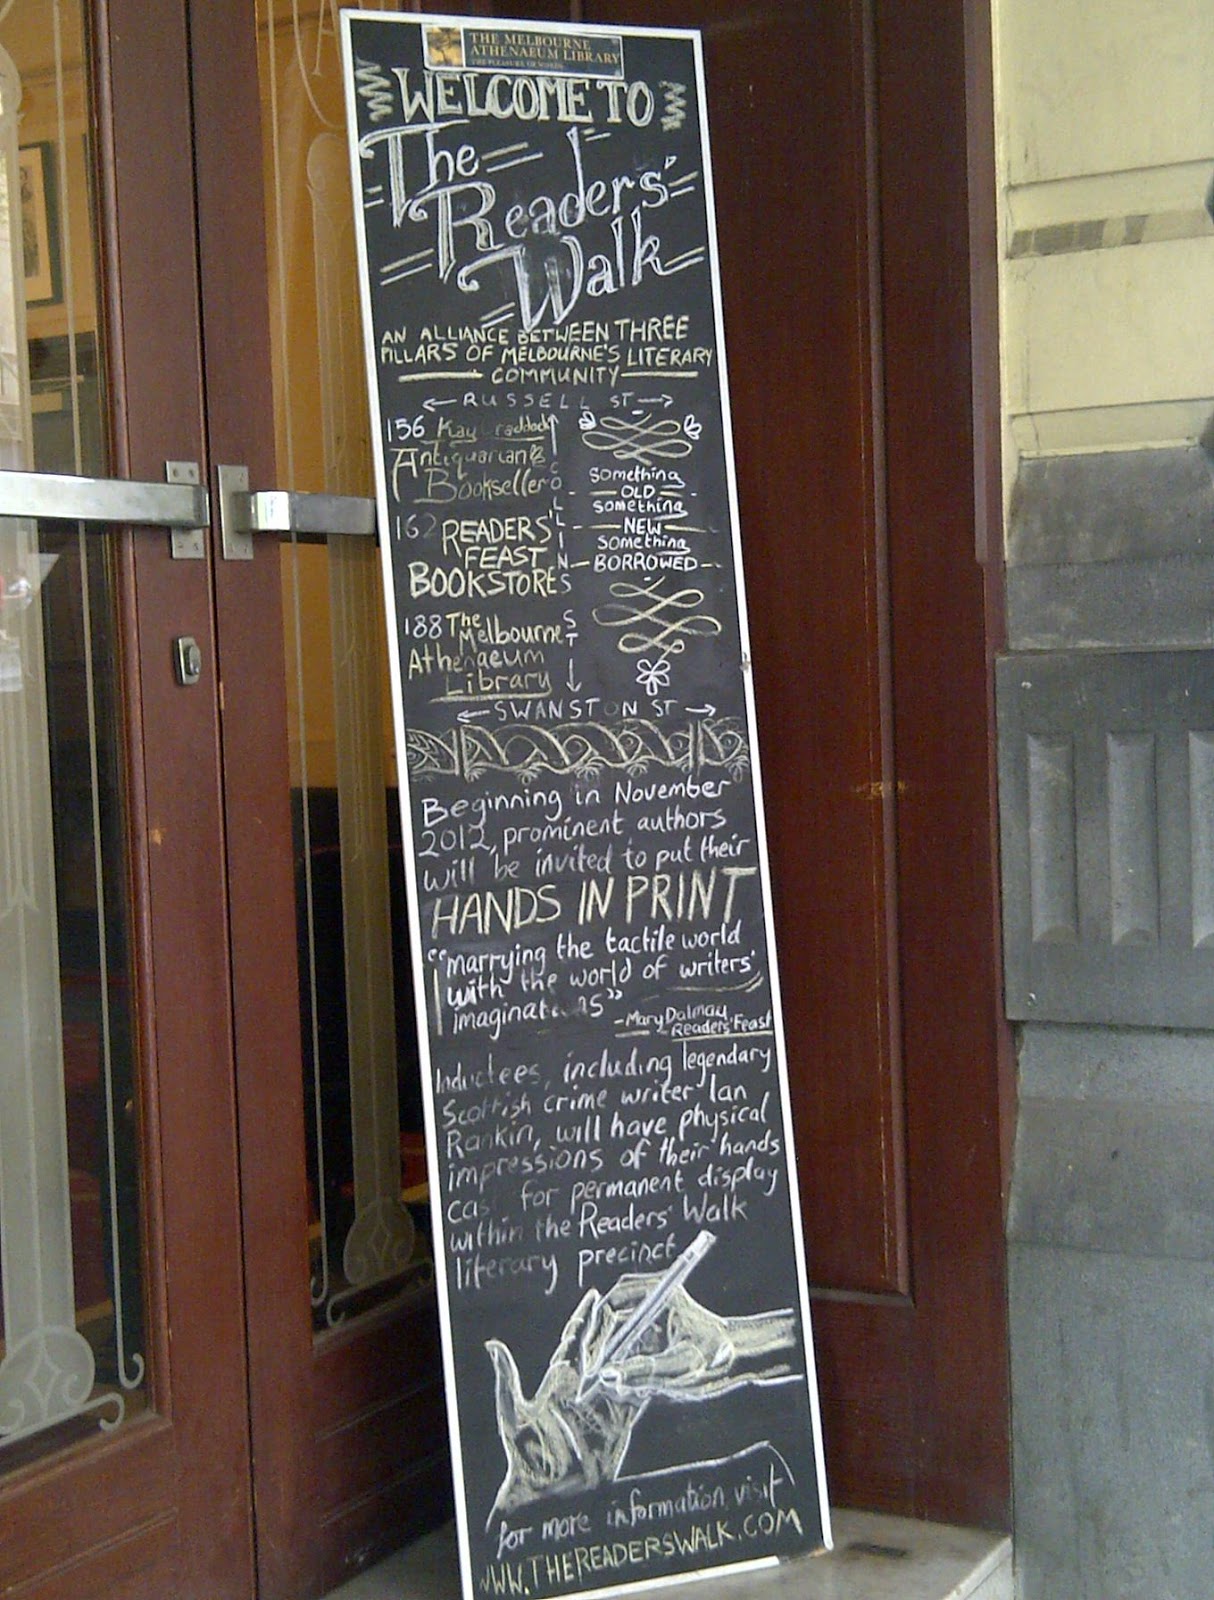 THE MELBOURNE
ATHENAEUM LIBRARY
THE PLEASURE OF WORDS
WELCOME TO
The
Readers'
Walk
AN ALLIANCE BETWEEN THREE
PILLARS OF MELBOURNE'S LITERARY
COMMUNITY
RUSSELL ST
156 Kay Craddock
Antiquarian
Bookseller
162 READERS'
FEAST
BOOKSTORE
188 The
Melbourne
Athenaeum
Library
COLLINS ST
something
OLD
something
NEW
something
BORROWED
SWANSTON ST
Beginning in November
2012, prominent authors
will be invited to put their
HANDS IN PRINT
"marrying the tactile world
with the world of writers'
imaginations"
-Mary Dalmau
Readers' Feast
Inductees, including legendary
Scottish crime writer Ian
Rankin, will have physical
impressions of their hands
cast for permanent display
within the Readers' Walk
literary precinct
for more information visit
WWW.THEREADERSWALK.COM